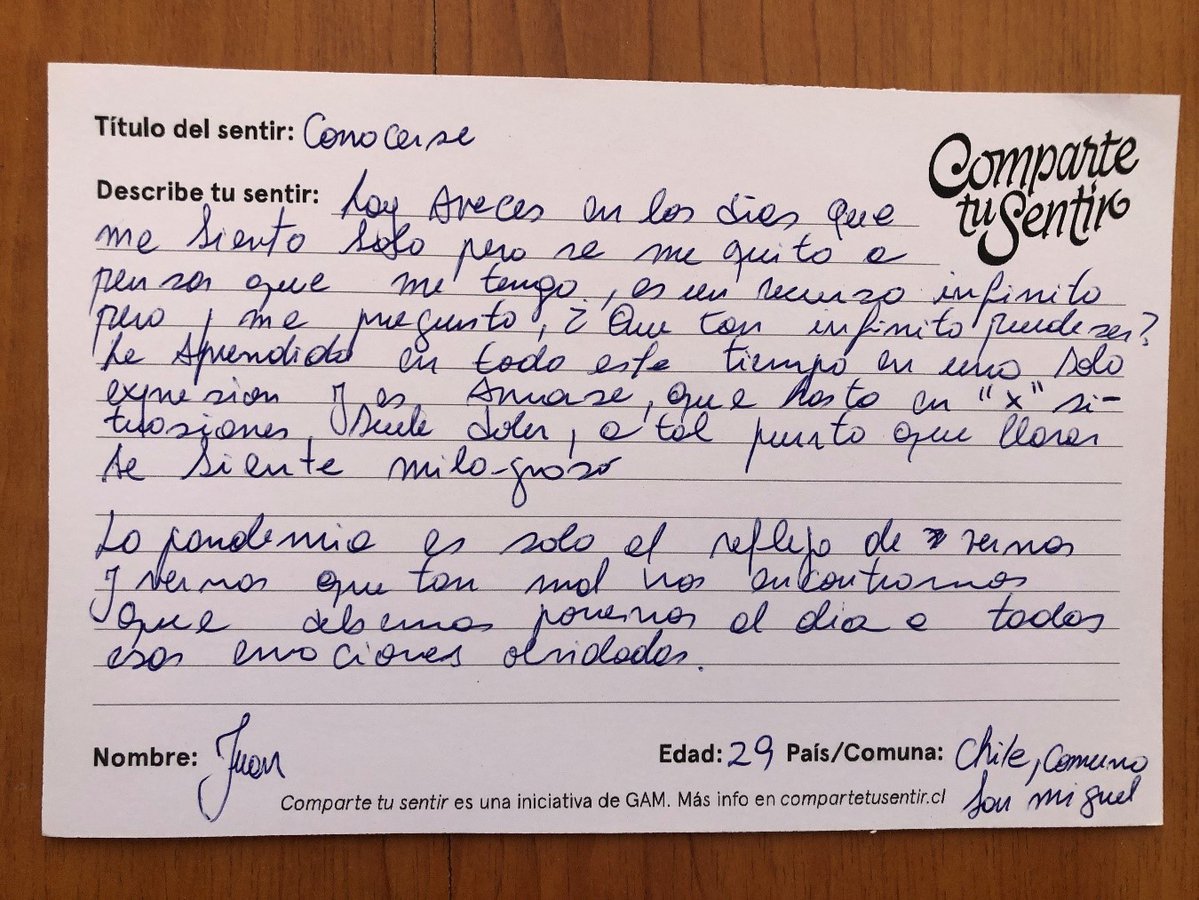 Título del sentir: Conocerse
Comparte
tu Sentir
Describe tu sentir: hay aveces en los dias que
me siento solo pero se me quita a
pensar que me tengo, es un recurso infinito
pero, me pregunto, ¿Que tan infinito puede ser?
he aprendido en todo este tiempo en una solo
expresion y es Amarse, que hasta en "x" si-
tuasiones, suele doler, a tal punto que llorar
se siente milagroso
La pandemia es solo el reflejo de vernos
y vernos que tan mal nos encontramos
que debemos ponernos al dia a todas
esas emociones olvidadas.
Nombre: Juan
Edad: 29 País/Comuna: Chile, Comuna
San miguel
Comparte tu sentir es una iniciativa de GAM. Más info en compartetusentir.cl